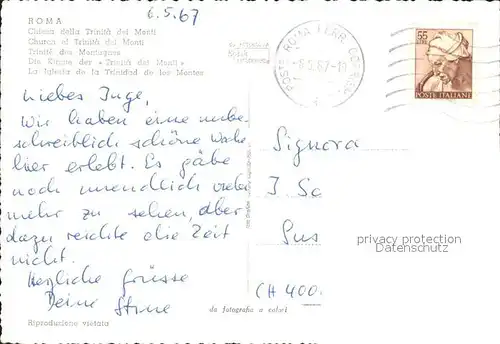 6.5.67
ROMA
Chiesa della Trinità dei Monti
Church of Trinità dei Monti
Trinité des Montagnes
Die Kirche der « Trinità dei Monti »
La Iglesia de la Trinidad de los Montes
POSTE ROMA FERR.
-6.5.67-19
55
POSTE ITALIANE
Liebes Inge,
Wir haben eine unbe
schreiblich schöne Woche
hier erlebt. Es gäbe
noch unendlich viele
mehr zu sehen, aber
dazu reichte die Zeit
nicht.
Herzliche Grüsse
Deine
Signora
I. Sc
Sus
CH 400
privacy protection
Datenschutz
da fotografia a colori
Riproduzione vietata